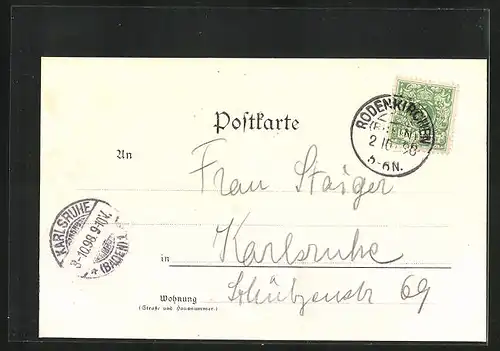 Postkarte
RODENKIRCHEN
2 10 98
5-6N.
An
Frau Staiger
KARLSRUHE
3-10.98.9-10V.
(BADEN) 1.
in Karlsruhe
Wohnung Schützenstr 69
(Straße und Hausnummer)